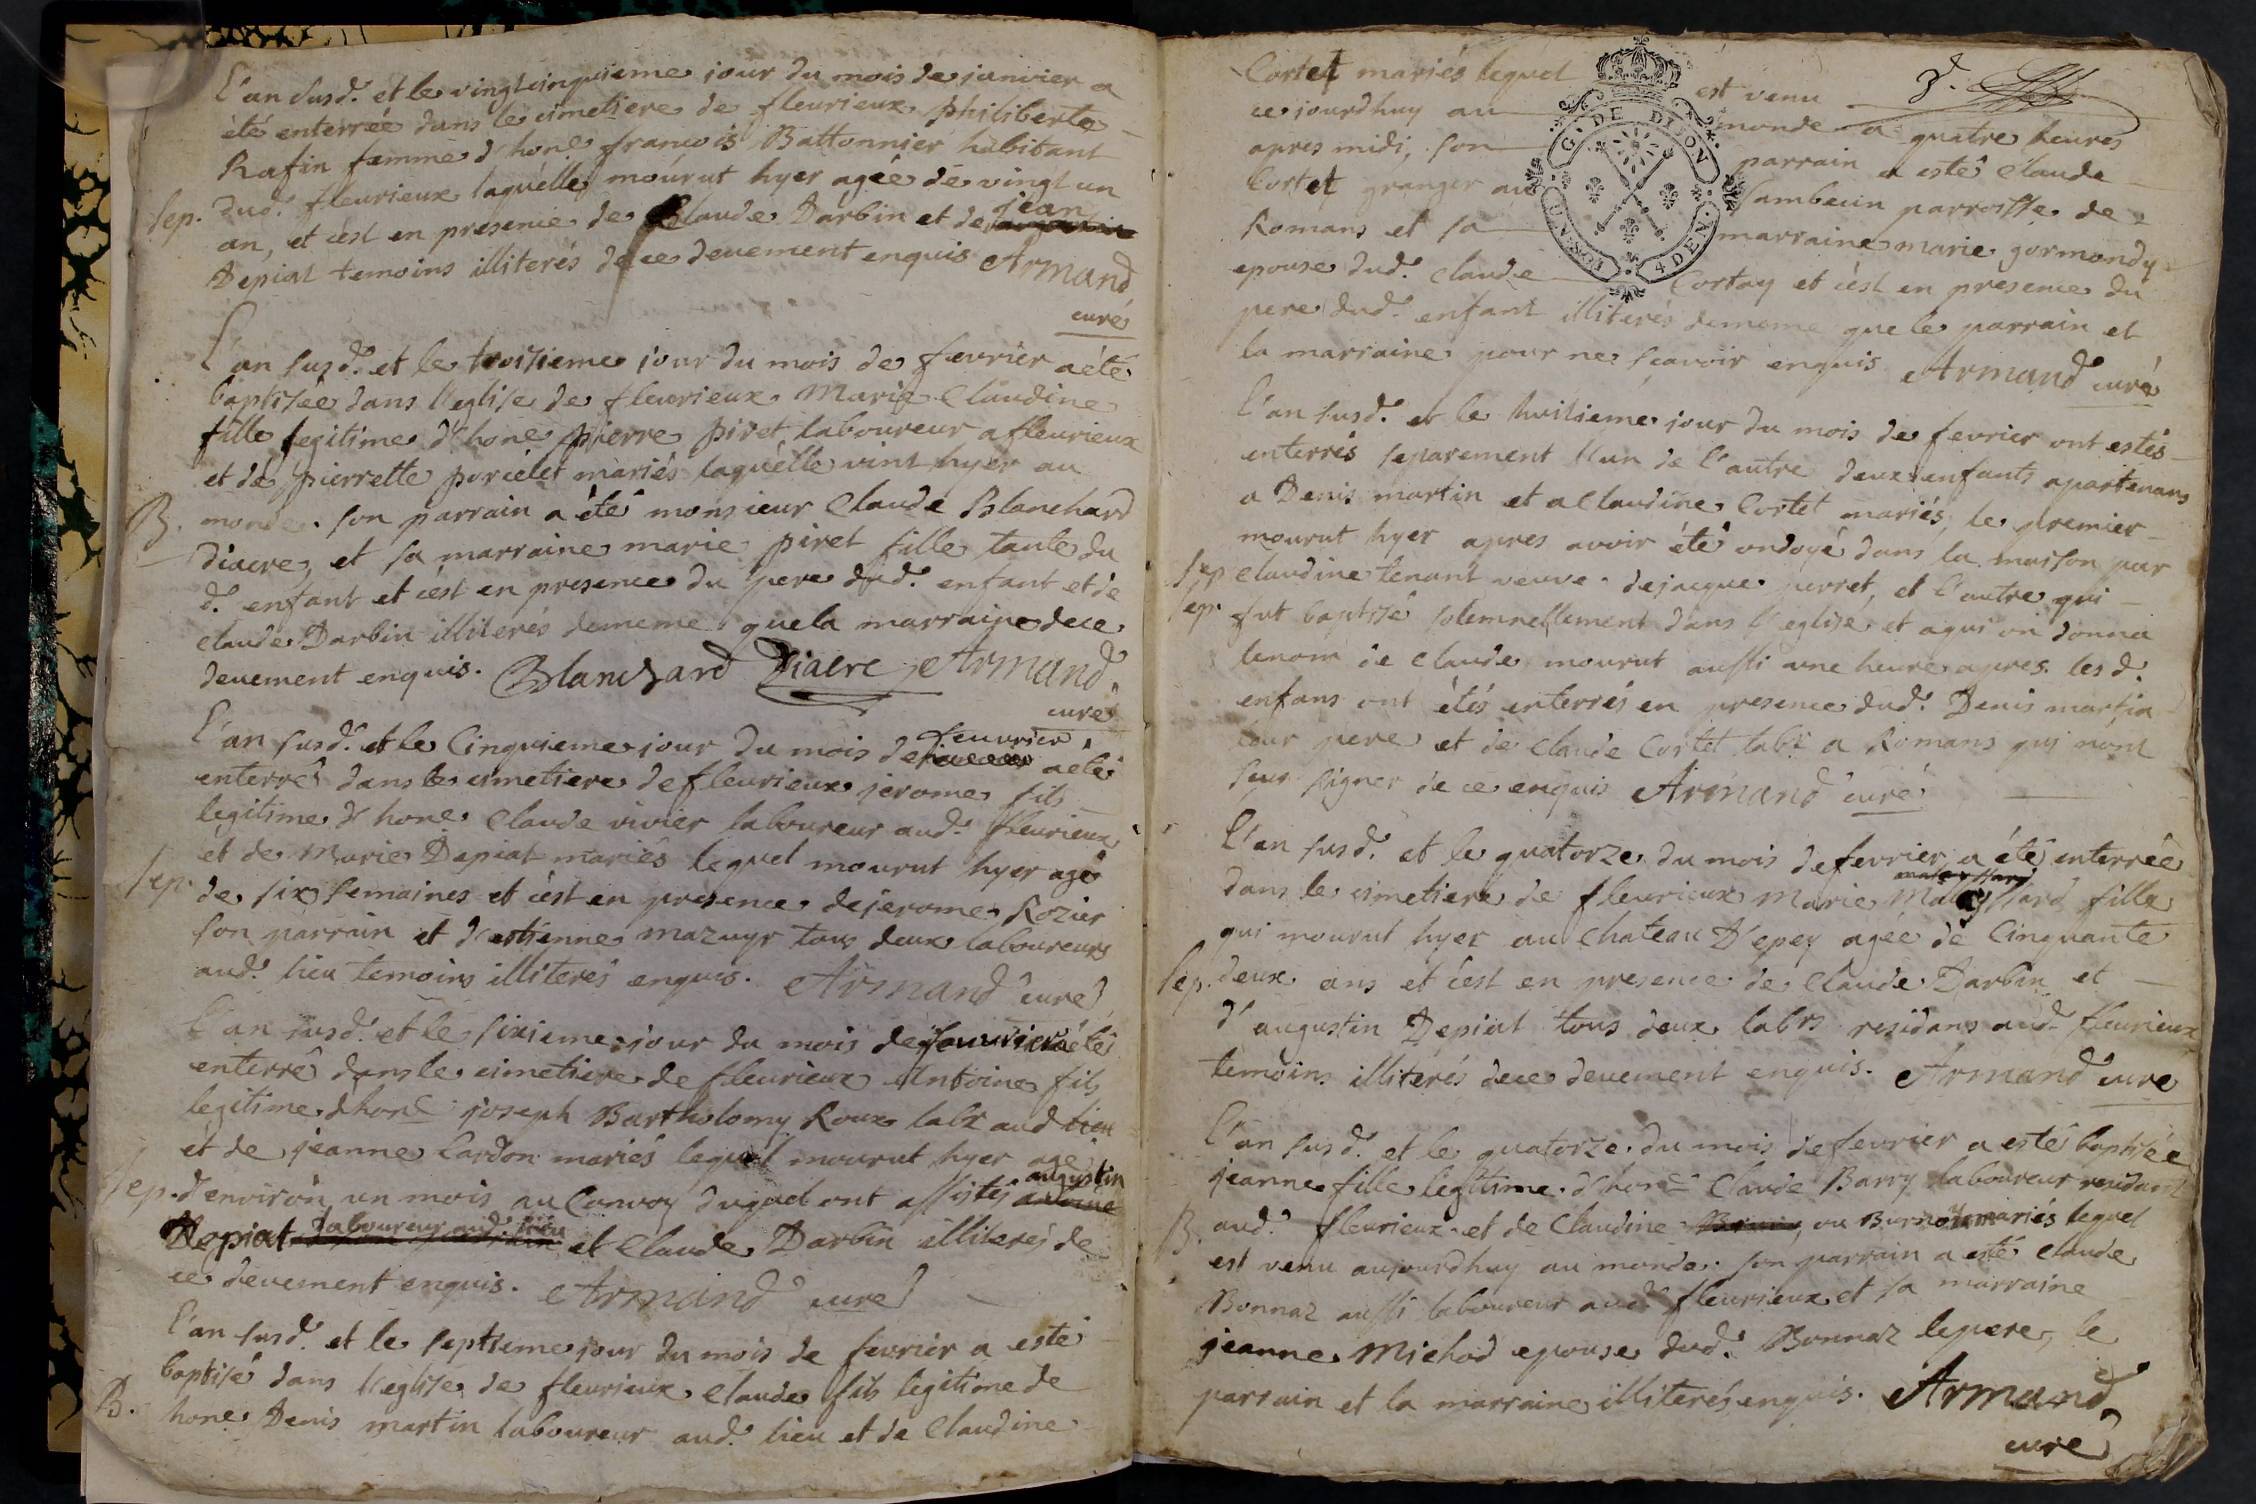 L'an susd. et le vingtcinquieme jour du mois de janvier a
été enterrée dans le cimetiere de fleurieux philiberte
Rafin femme d'hone francois Battonnier habitant
Sep. dud. fleurieux laquelle mourut hyer agée de vingt un
an, et c'est en presence de Claude Darbin et de jean
Depiat temoins illiterés de ce deuement enquis Armand
curé
L'an susd. et le troisieme jour du mois de fevrier a été
baptisée dans l'eglise de fleurieux Marie Claudine
fille legitime d'hone pierre piret laboureur a fleurieux
et de pierrette porcelet mariés laquelle vint hyer au
B. monde. son parrain a été monsieur Claude Blanchard
diacre, et sa marraine marie piret fille tante du
d. enfant et c'est en presence du pere dud. enfant et de
claude Darbin illiterés dememe que la marraine de ce
deuement enquis. Blanchard Diacre Armand
curé
L'an susd. et le Cinquieme jour du mois de feuvrier a été
enterré dans le cimetiere de fleurieux jerome fils
legitime d'hone Claude vivier laboureur aud. fleurieux
et de Marie Depiat mariés lequel mourut hyer agé
Sep. de six semaines et c'est en presence de jerome Rozier
son parrain et d'estienne mazuyr tous deux laboureurs
aud. lieu temoins illiterés enquis. Armand curé
L'an susd. et le sixieme jour du mois de feuvrier a été
enterré dans le cimetiere de fleurieux Antoine fils
legitime d'hone joseph Bartholomy Roux labr aud lieu
et de jeanne Cardon mariés lequel mourut hyer agé
Sep. d'environ un mois au Convoy duquel ont assistés augustin
Depiat laboureur aud. lieu et Claude Darbin illiterés de
ce deuement enquis. Armand curé
L'an susd. et le septieme jour du mois de fevrier a esté
baptisé dans l'eglise de fleurieux Claude fils legitime de
B. hone Denis martin laboureur aud. lieu et de Claudine
Cortet mariés lequel est venu 3.
ce jourdhuy au monde a quatre heures
apres midi, son parrain a esté Claude
Cortet granger au Sambecin parroisse de
Romans et sa marraine marie gormondy
epouse dud. Claude Cortay et c'est en presence du
pere dud. enfant illiterés dememe que le parrain et
la marraine pour ne scavoir enquis Armand curé
G. DE DIJON
4 DEN.
L'an susd. et le huitieme jour du mois de fevrier ont estés
enterrés separement l'un de l'autre deux enfants apartenans
a Denis martin et a Claudine Cortet mariés, le premier
mourut hyer apres avoir été ondoyé dans la maison par
Sep claudine tenant veuve de jacque perret, et l'autre qui
Sep. fut baptisé solemnellement dans l'eglise et a qui on donna
le nom de Claude mourut aussi une heure apres. les d.
enfans ont étés enterrés en presence dud. Denis martin
leur pere et de Claude Cortet labr a Romans qui n'ont
sçu signer de ce enquis Armand curé
L'an susd. et le quatorze du mois de fevrier a été enterrée
dans le cimetiere de fleurieux Marie fille
qui mourut hyer au Chateau D'epey agée de Cinquante
Sep. deux ans et c'est en presence de Claude Darbin et
d'augustin Depiat tous deux labrs residans aud. fleurieux
temoins illiterés de ce deuement enquis. Armand curé
L'an susd. et le quatorze du mois de fevrier a esté baptisée
jeanne fille legitime d'hone Claude Barry laboureur residant
B. aud. fleurieux et de Claudine ou mariés lequel
est venu aujourdhuy au monde. son parrain a esté Claude
Bonnaz aussi laboureur aud. fleurieux et sa marraine
jeanne Michod epouse dud. Bonnaz le pere, le
parrain et la marraine illiterés enquis. Armand
curé